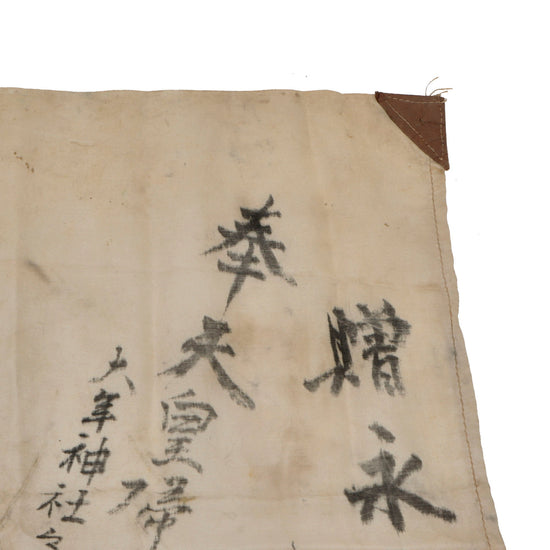 贈永
奉天皇帰
大年神社々